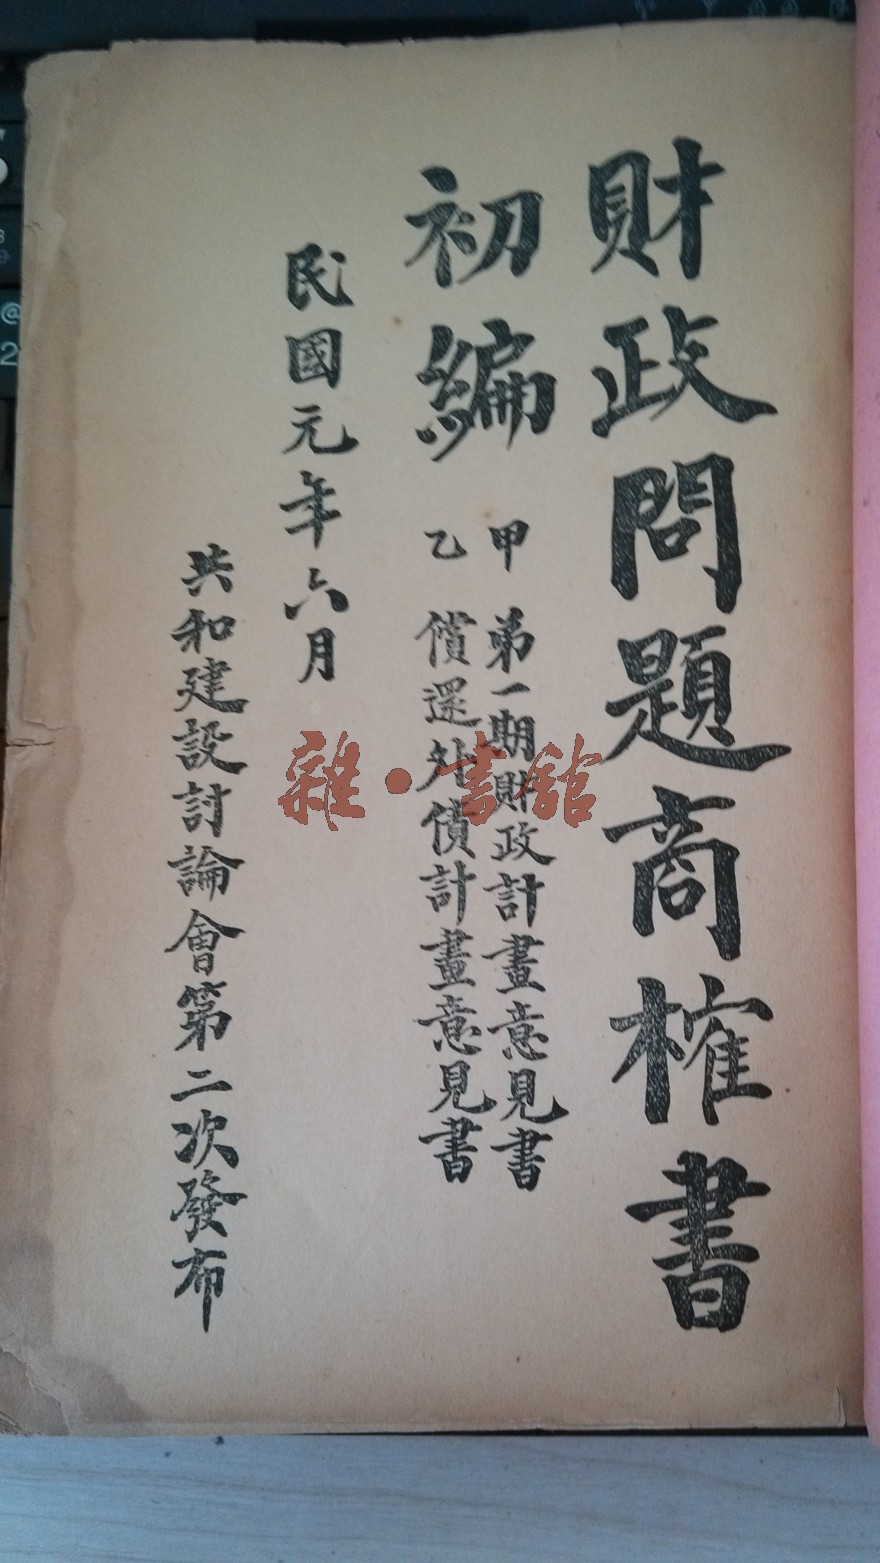 財政問題商榷書
初編
甲 弟一期財政計畫意見書
乙 償還外債計畫意見書
民國元年六月
共和建設討論會第二次發布
雜·書館